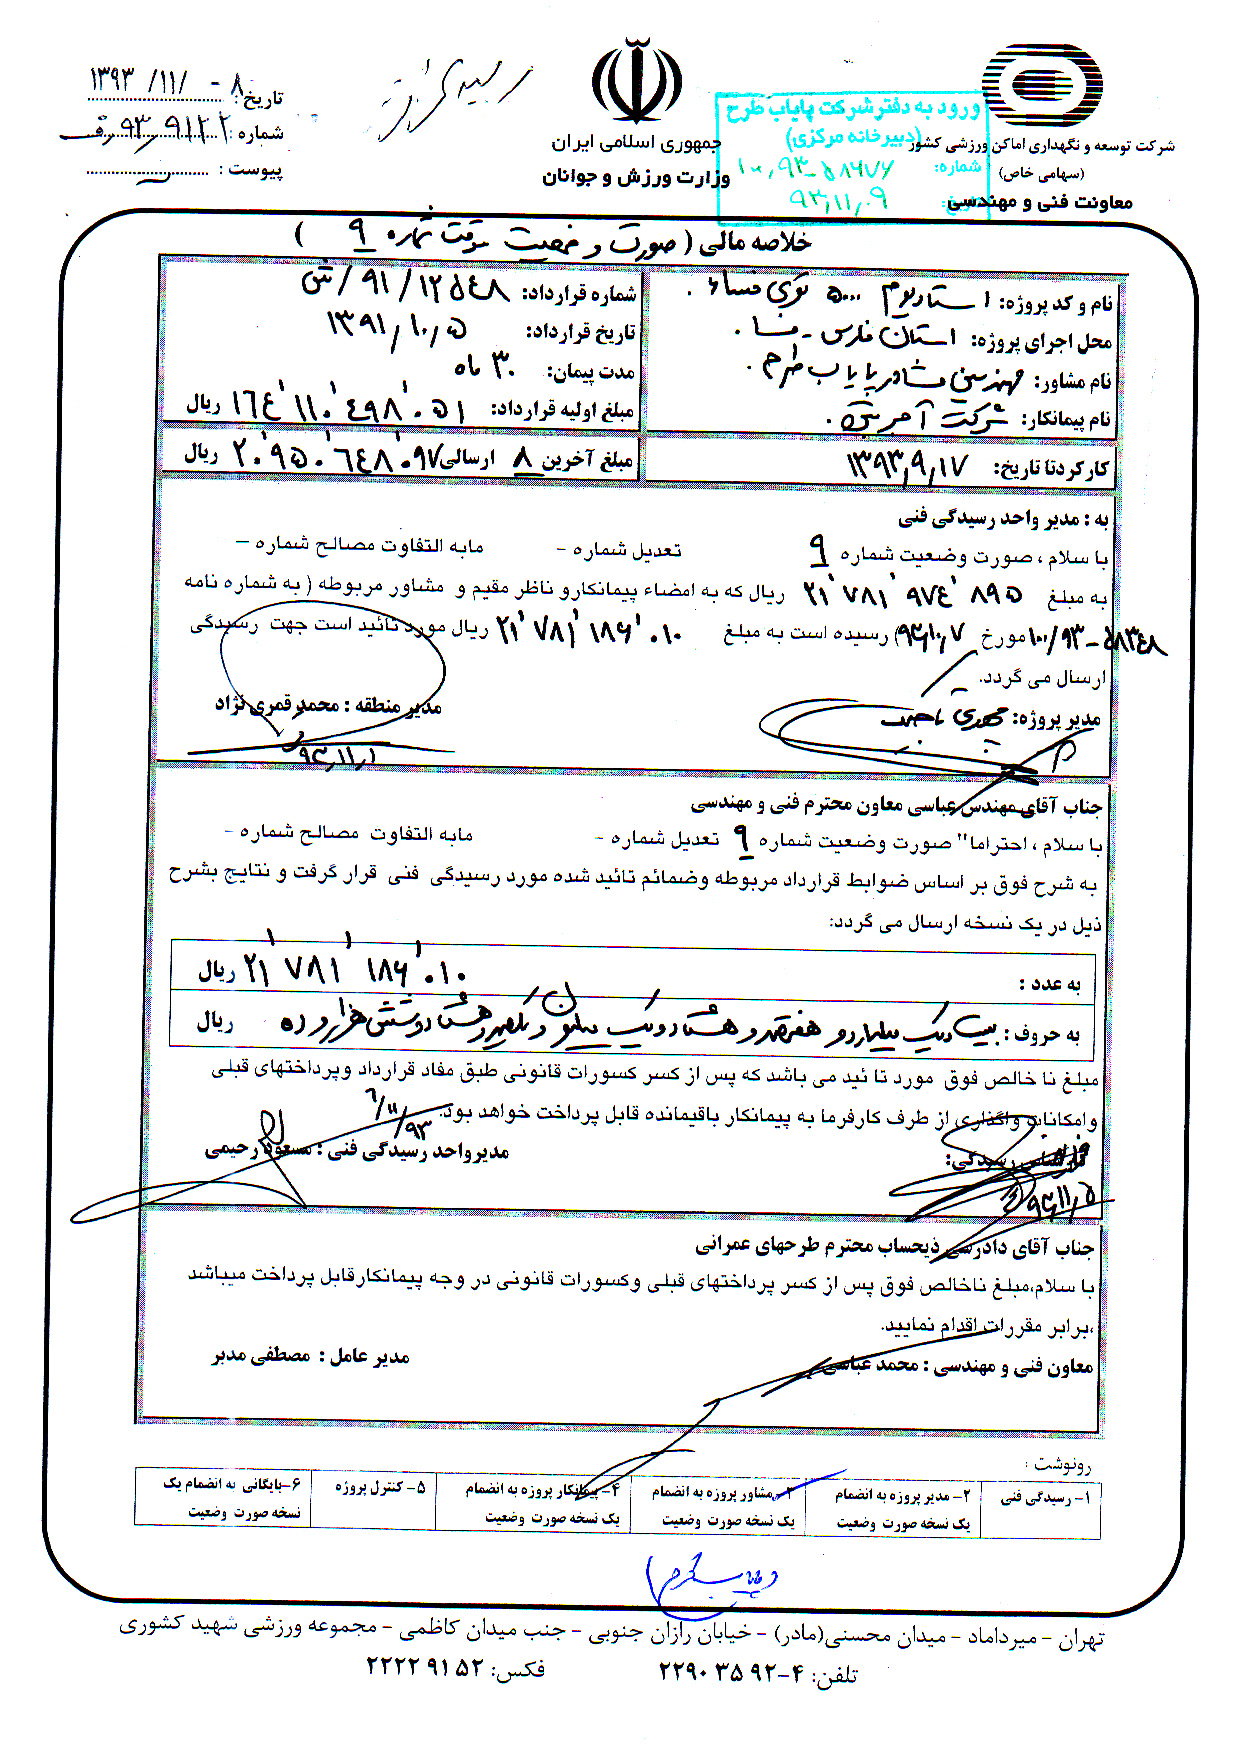 تاریخ: ۱۳۹۳/۱۱/۰۸
شماره: ۹۳,۹۱۲۲
پیوست:
جمهوری اسلامی ایران
وزارت ورزش و جوانان
شرکت توسعه و نگهداری اماکن ورزشی کشور
(سهامی خاص)
معاونت فنی و مهندسی
ورود به دفتر شرکت پایاب طرح
(دبیرخانه مرکزی)
شماره:
۹۳,۱۱,۰۹
خلاصه مالی ( صورت وضعیت موقت شماره ۹ )
نام و کد پروژه: استادیوم ۵۰۰۰ نفری فسا
محل اجرای پروژه: استان فارس - فسا
نام مشاور: مهندسین مشاور پایاب طرح
نام پیمانکار: شرکت
شماره قرارداد: ۹۱/۱۲۵۴۸/ش
تاریخ قرارداد: ۱۳۹۱/۱۰/۵
مدت پیمان: ۳۰ ماه
مبلغ اولیه قرارداد: ۱۶۴٬۱۱۰٬۴۹۸٬۰۵۱ ریال
کارکرد تا تاریخ: ۱۳۹۳,۹,۱۷
مبلغ آخرین ۸ ارسالی ۲۰٬۹۵۰٬۶۴۸٬۰۹۷ ریال
به : مدیر واحد رسیدگی فنی
با سلام ، صورت وضعیت شماره ۹ تعدیل شماره - مابه التفاوت مصالح شماره -
به مبلغ ۲۱٬۷۸۱٬۹۷۴٬۸۹۵ ریال که به امضاء پیمانکارو ناظر مقیم و مشاور مربوطه ( به شماره نامه
۱۰۰/۹۳-۵۸۳۴۸ مورخ ۹۳,۱۰,۷) رسیده است به مبلغ ۲۱٬۷۸۱٬۱۸۶٬۰۱۰ ریال مورد تائید است جهت رسیدگی
ارسال می گردد.
مدیر پروژه:
مدیر منطقه : محمد قمری نژاد
۹۳,۱۱,۱
جناب آقای مهندس عباسی معاون محترم فنی و مهندسی
با سلام ، احتراما" صورت وضعیت شماره ۹ تعدیل شماره - مابه التفاوت مصالح شماره -
به شرح فوق بر اساس ضوابط قرارداد مربوطه وضمائم تائید شده مورد رسیدگی فنی قرار گرفت و نتایج بشرح
ذیل در یک نسخه ارسال می گردد:
به عدد : ۲۱٬۷۸۱٬۱۸۶٬۰۱۰ ریال
به حروف : بیست و یک میلیارد و هفتصد و هشتاد و یک میلیون و یکصد و هشتاد و شش هزار و ده ریال
مبلغ نا خالص فوق مورد تا ئید می باشد که پس از کسر کسورات قانونی طبق مفاد قرارداد وپرداختهای قبلی
وامکانات واگذاری از طرف کارفرما به پیمانکار باقیمانده قابل پرداخت خواهد بود.
کارشناس رسیدگی:
۹۳,۱۱,۵
مدیرواحد رسیدگی فنی : مسعود رحیمی
۶/۱۱/۹۳
جناب آقای دادرسی ذیحساب محترم طرحهای عمرانی
با سلام،مبلغ ناخالص فوق پس از کسر پرداختهای قبلی وکسورات قانونی در وجه پیمانکارقابل پرداخت میباشد
،برابر مقررات اقدام نمایید.
معاون فنی و مهندسی : محمد عباسی
مدیر عامل : مصطفی مدبر
رونوشت :
۱- رسیدگی فنی
۲- مدیر پروژه به انضمام یک نسخه صورت وضعیت
۳- مشاور پروژه به انضمام یک نسخه صورت وضعیت
۴- پیمانکار پروژه به انضمام یک نسخه صورت وضعیت
۵- کنترل پروژه
۶-بایگانی به انضمام یک نسخه صورت وضعیت
تهران - میرداماد - میدان محسنی(مادر) - خیابان رازان جنوبی - جنب میدان کاظمی - مجموعه ورزشی شهید کشوری
تلفن: ۴-۲۲۹۰۳۵۹۲ فکس: ۲۲۲۲۹۱۵۲